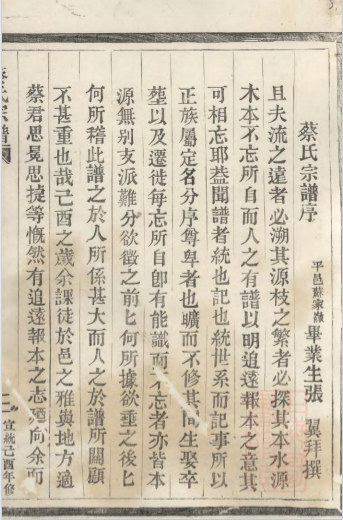 蔡氏宗譜序
平邑蘇家嶺 畢業生張 翼拜撰
且夫流之遠者必溯其源枝之繁者必探其本水源
木本不忘所自而人之有譜以明追遠報本之意其
可相忘耶葢聞譜者統也記也統世系而記事所以
正族屬定名分序尊卑者也曠而不修其間生娶卒
塟以及遷徙每忘所自卽有能識而不忘者亦皆本
源無别支派難分欲徵之前匕何所據欲垂之後匕
何所稽此譜之於人所係甚大而人之於譜所關顧
不甚重也哉己酉之歲余課徒於邑之雅與地方適
蔡君思晃思㨗等慨然有追遠報本之志廼向余而
蔡氏宗譜
一
宣統己酉年修